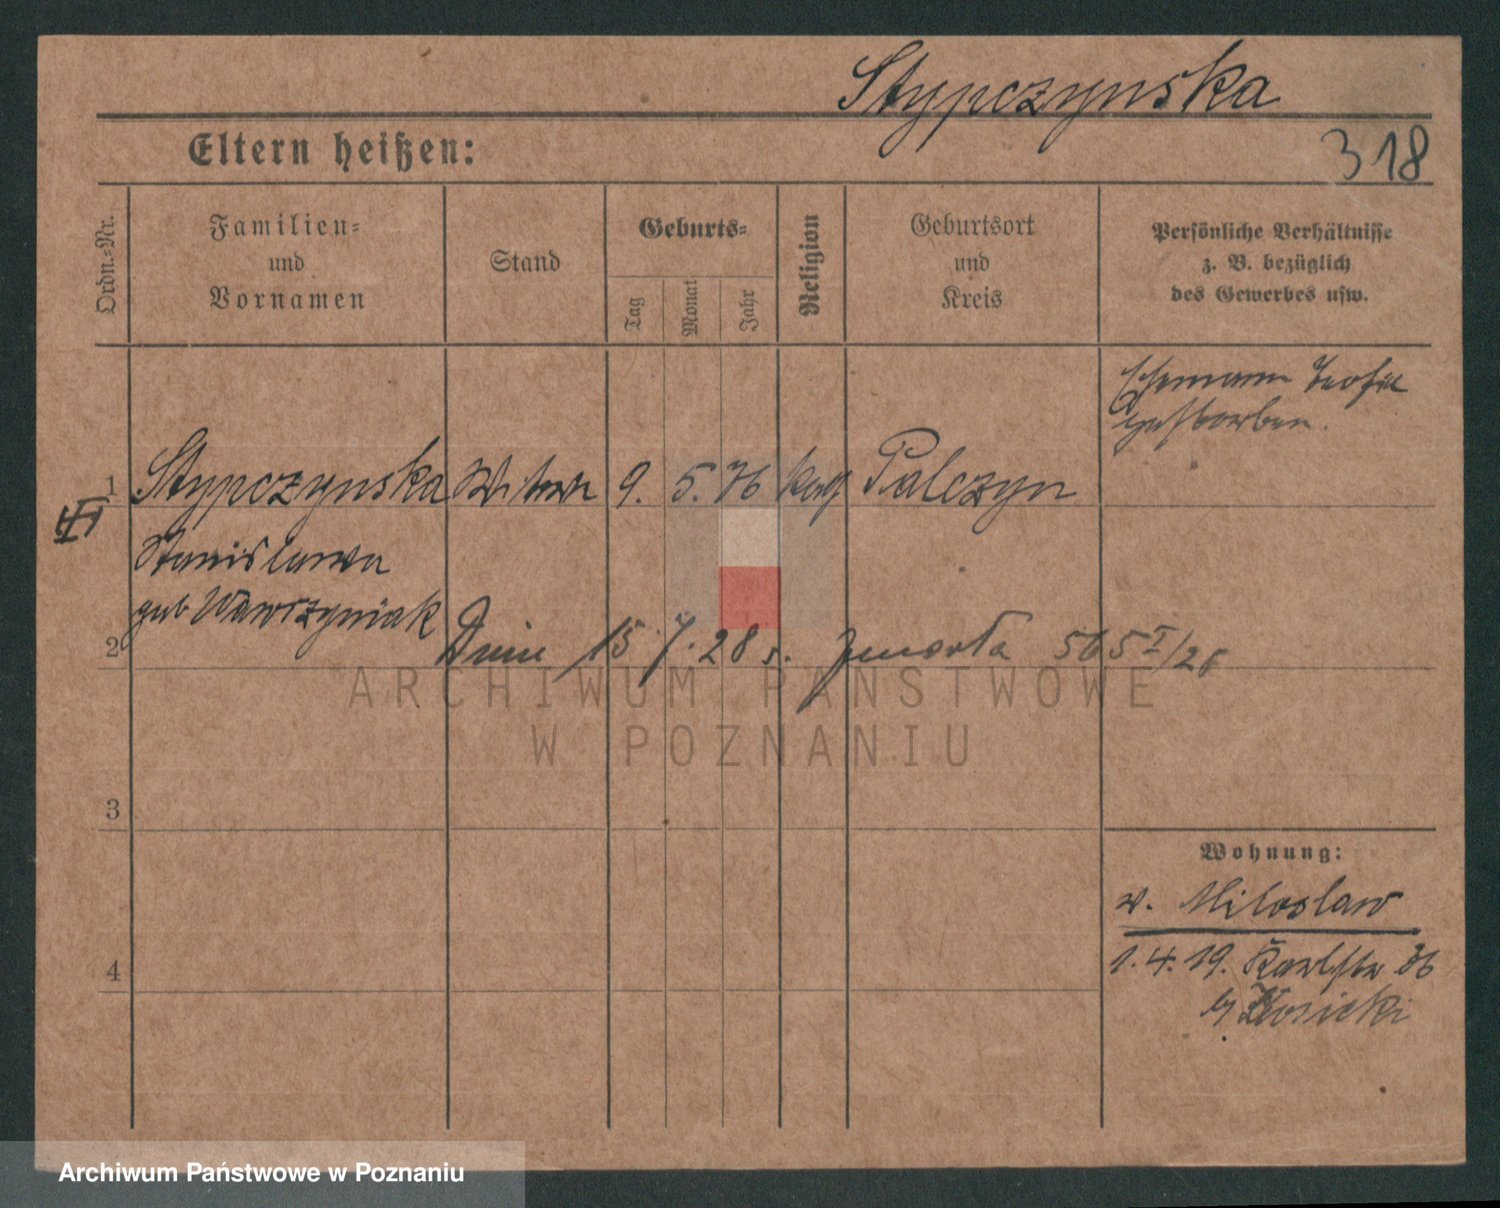 Stypczynska
318
Eltern heißen:
Ordn.-Nr.
Familien-
und
Vornamen
Stand
Geburts-
Tag
Monat
Jahr
Religion
Geburtsort
und
Kreis
Persönliche Verhältnisse
z. B. bezüglich
des Gewerbes usw.
Ehemann Teofil
gestorben.
1 Stypczynska Witwe 9. 5. 76 kath Palczyn
Stanislawa
geb Wawrzyniak
2 Dnia 15 7. 28 r. zmarła 565 I/28
3
4
Wohnung:
v. Miloslaw
1. 4. 19. Karlstr 36
b/ Kosicki
ARCHIWUM PAŃSTWOWE
W POZNANIU
Archiwum Państwowe w Poznaniu